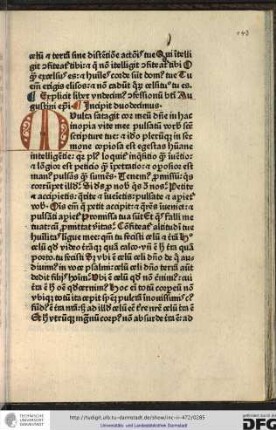 celū & terrā sine distētiōe actōis tue Qui ītelli
git ꝯfiteat᷑ tibi: & q̄ nō ītelligit ꝯfiteat᷑ tibi O
ꝙ excelsus es: & hūiles corde sūt dom⁹ tua Tu
em̄ erigis elisos: & nō cadūt quoꝝ celsitudo tu es.
Explicit liber vndecim⁹ ꝯfessionū bt̄i Au
gustini ep̄i Incipit duodecimus.
Multa satagit cor meū dn̄e in hac
inopia vite mee pulsatū verbis scē
scripture tue: & ido plerūqꝫ in ser
mone copiosa est egestas hūane
intelligētie: qꝛ pl⁹ loquit᷑ inq̄sitio qͣ̄ inuētio:
& lōgior est petitio qͣ̄ īpetratio: & opiosior est
man⁹ pulsās qͣ̄ sumēs. Tenem⁹ ꝓmissū: q̄s
corrūpet illud. Si ds̄ ꝓ nobis q̄s ꝯ nos? Petite
& accipietis: q̄rite & inuenietis: pulsate & apiet᷑
vob̄. Ois em̄ qui petit accipit: & q̄rēs inueniet: &
pulsāti apiet᷑ Promissa tua sūt Et quis falli me
tuat: cū ꝓmittat veritas? Confiteat᷑ altitudi tue
hūilitas ligue mee: qm̄ tu fecisti celū & t̄rā hoc
celū qd̄ video t̄rāqꝫ quā calco vn̄ ē h̄ t̄ra quā
porto. tu fecisti Sꝫ vbi ē celū celi dn̄e de quo au
diuim⁹ in voce psalmi: celū celi dn̄o terrā aūt
dedit filijs hoīm? Vbi ē celū qd̄ nō c̄nim⁹: cui
t̄ra ē h̄ oē qd̄ cernim⁹? Hoc ei totū corpeū nō
vbiqꝫ totū ita cepit speꝫ pulcrā ī nouissimis cui⁹
fūd⁹ ē t̄ra nr̄a: sꝫ ad illd̄ celū celi eciā nr̄e celū t̄ra ē
Et h̄ vtrūqꝫ magnū corpus nō absurde t̄ra ē: ad
TECHNISCHE UNIVERSITÄT DARMSTADT
http://tudigit.ulb.tu-darmstadt.de/show/inc-ii-472/0285
Universitäts- und Landesbibliothek Darmstadt
DFG